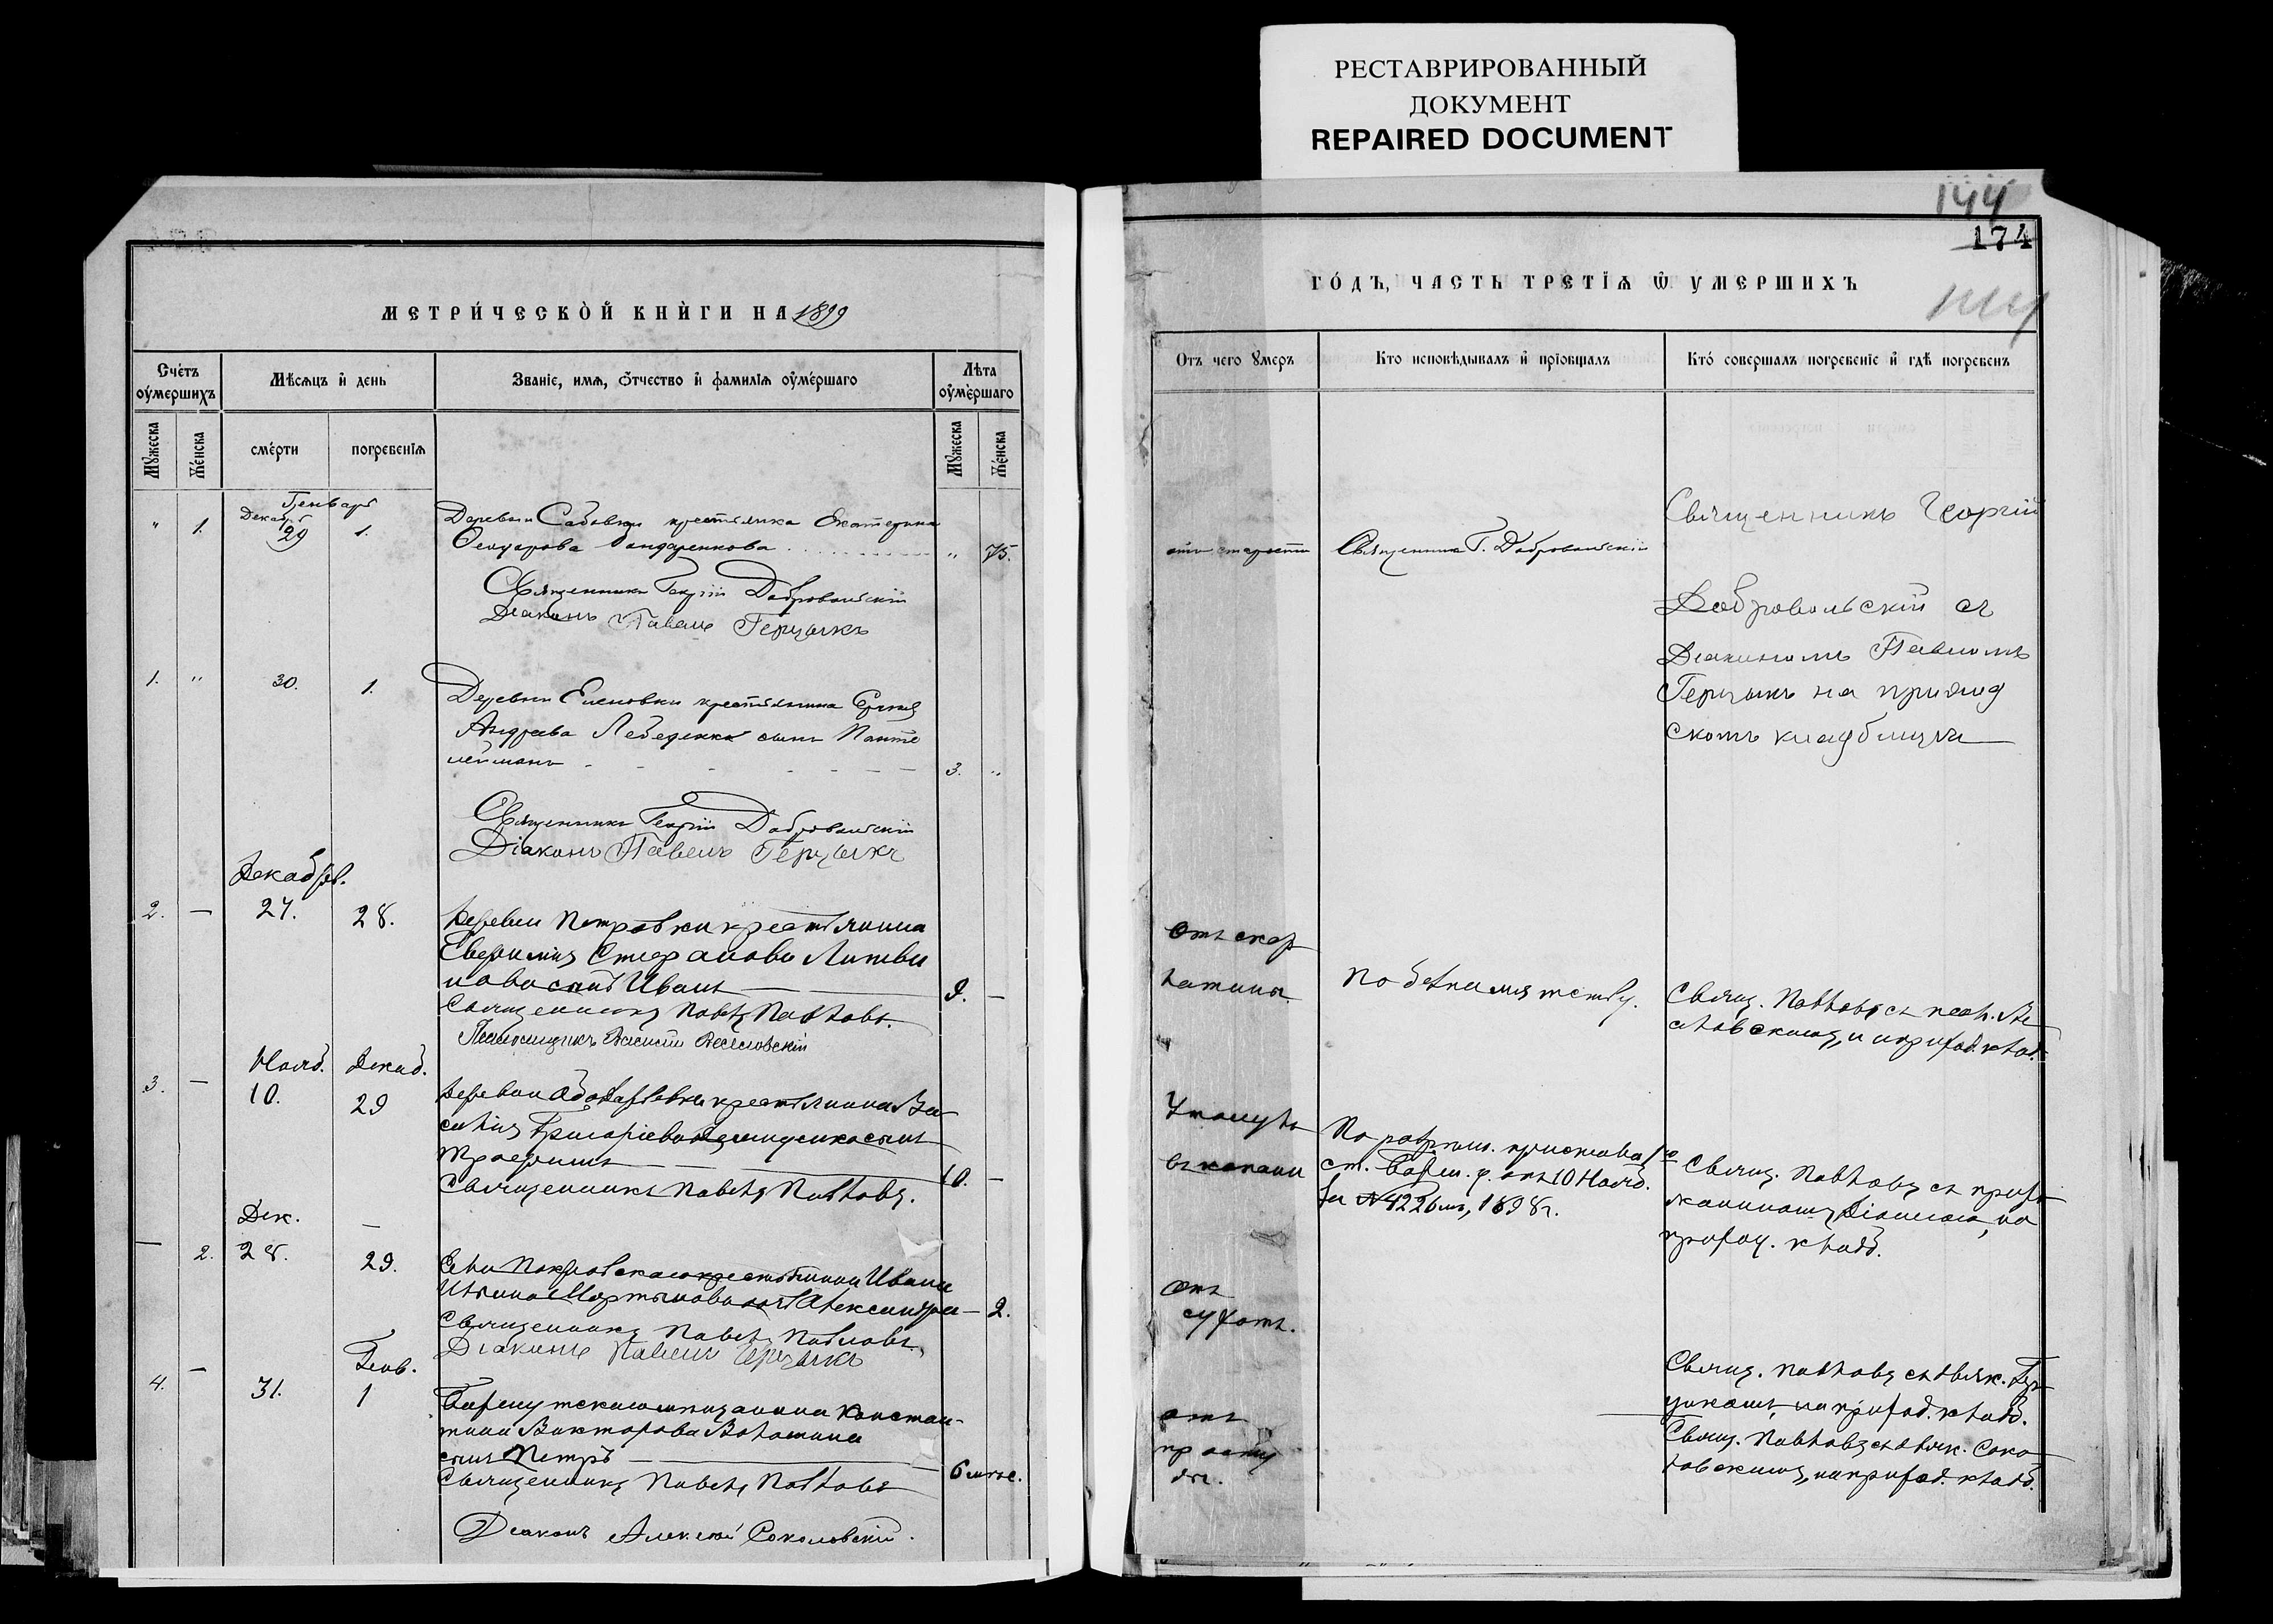 РЕСТАВРИРОВАННЫЙ
ДОКУМЕНТ
REPAIRED DOCUMENT
МЕТРИ́ЧЕСКОЙ КНИ́ГИ НА 1899
Сче́тъ ᲂу҆ме́ршихъ
Мѣсѧцъ и҆ день
Званіе, имѧ, ѻ҆тчество и҆ фамилїѧ ᲂу҆ме́ршаго
Лѣта ᲂу҆ме́ршаго
Мꙋжеска
Же́нска
сме́рти
погребенїѧ
Мꙋжеска
Же́нска
Генварь
Декабрь
" 1. 29 1.
Деревни Садовки крестьянка Екатерина
Феодорова Бондаренкова " 75.
Священникъ Георгій Добровольскій
Діаконъ Павелъ Герцыкъ
1. " 30. 1.
Деревни Еленовки крестьянина
Андреева Лебеденка сынъ Панте
леймонъ 3. "
Священникъ Георгій Добровольскій
Діаконъ Павелъ Герцыкъ
Декабрь.
2. — 27. 28.
Деревни Петровки крестьянина
Евфимія Стефанова Литви
нова сынъ Иванъ — 9. —
Священникъ Павелъ Павловъ.
Псаломщикъ Василій Веселовскій
Нояб. Декаб.
3. — 10. 29
Деревни крестьянина Ва
силія Григоріева сынъ
Трофимъ — 10. —
Священникъ Павелъ Павловъ.
Дек. —
— 2. 28. 29.
Села Покровскаго крестьянина Ивана
Ильина Мартынова дочь Александра — 2.
Священникъ Павелъ Павловъ.
Діаконъ Павелъ Герцыкъ
Генв.
4. — 31. 1
мѣщанина Констан-
тина Викторова Волошина
сынъ Петръ — 6 мѣс.
Священникъ Павелъ Павловъ
Діаконъ Алексій Соколовскій.
144
174
ГО́ДЪ, ЧАСТЬ ТРЕТІѦ Ѿ УМЕРШИХЪ
144
Отъ чего ᲂу҆меръ
Кто исповѣдывалъ и҆ прїобщалъ
Кто́ совершалъ погребенїе и҆ гдѣ погребенъ
отъ старости
Священникъ Г. Добровольскій
Священникъ Георгій
Добровольскій съ
Діакономъ Павломъ
Герцыкъ на приход
скомъ кладбищѣ
Отъ скар
латины
По безпамятству.
Свящ. Павловъ съ псал. Ве
селовскимъ, на приход. клад.
Утонулъ
въ копани
По пристава
ст. отъ 10 Нояб.
за № 4226мъ, 1898 г.
Свящ. Павловъ съ
діакона, на
приход. кладб.
Отъ
сухотъ.
Свящ. Павловъ съ діак. Гер
цыкомъ, на приход. кладб.
отъ
просту
ды.
Свящ. Павловъ съ діак. Соко
ловскимъ, на приход. кладб.